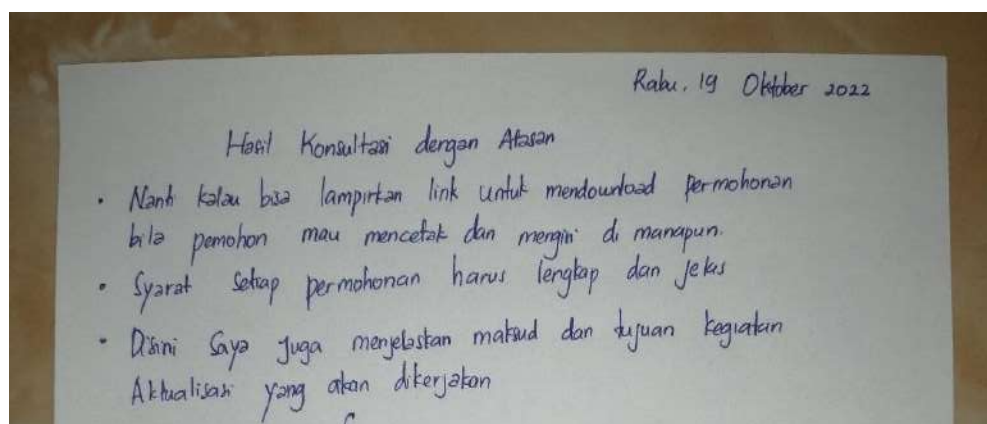 Rabu, 19 Oktober 2022
Hasil Konsultasi dengan Atasan
• Nanti kalau bisa lampirkan link untuk mendownload permohonan
bila pemohon mau mencetak dan mengisi di manapun.
• Syarat setiap permohonan harus lengkap dan jelas
• Disini saya juga menjelaskan maksud dan tujuan kegiatan
Aktualisasi yang akan dikerjakan